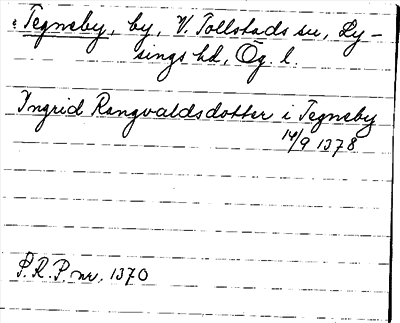 Tegneby, by, V. Tollstads sn, Ly-
sings hd, Ög. l.
Ingrid Rangvaldsdotter i Tegneby
14/9 1378
S.R.P. nr. 1370